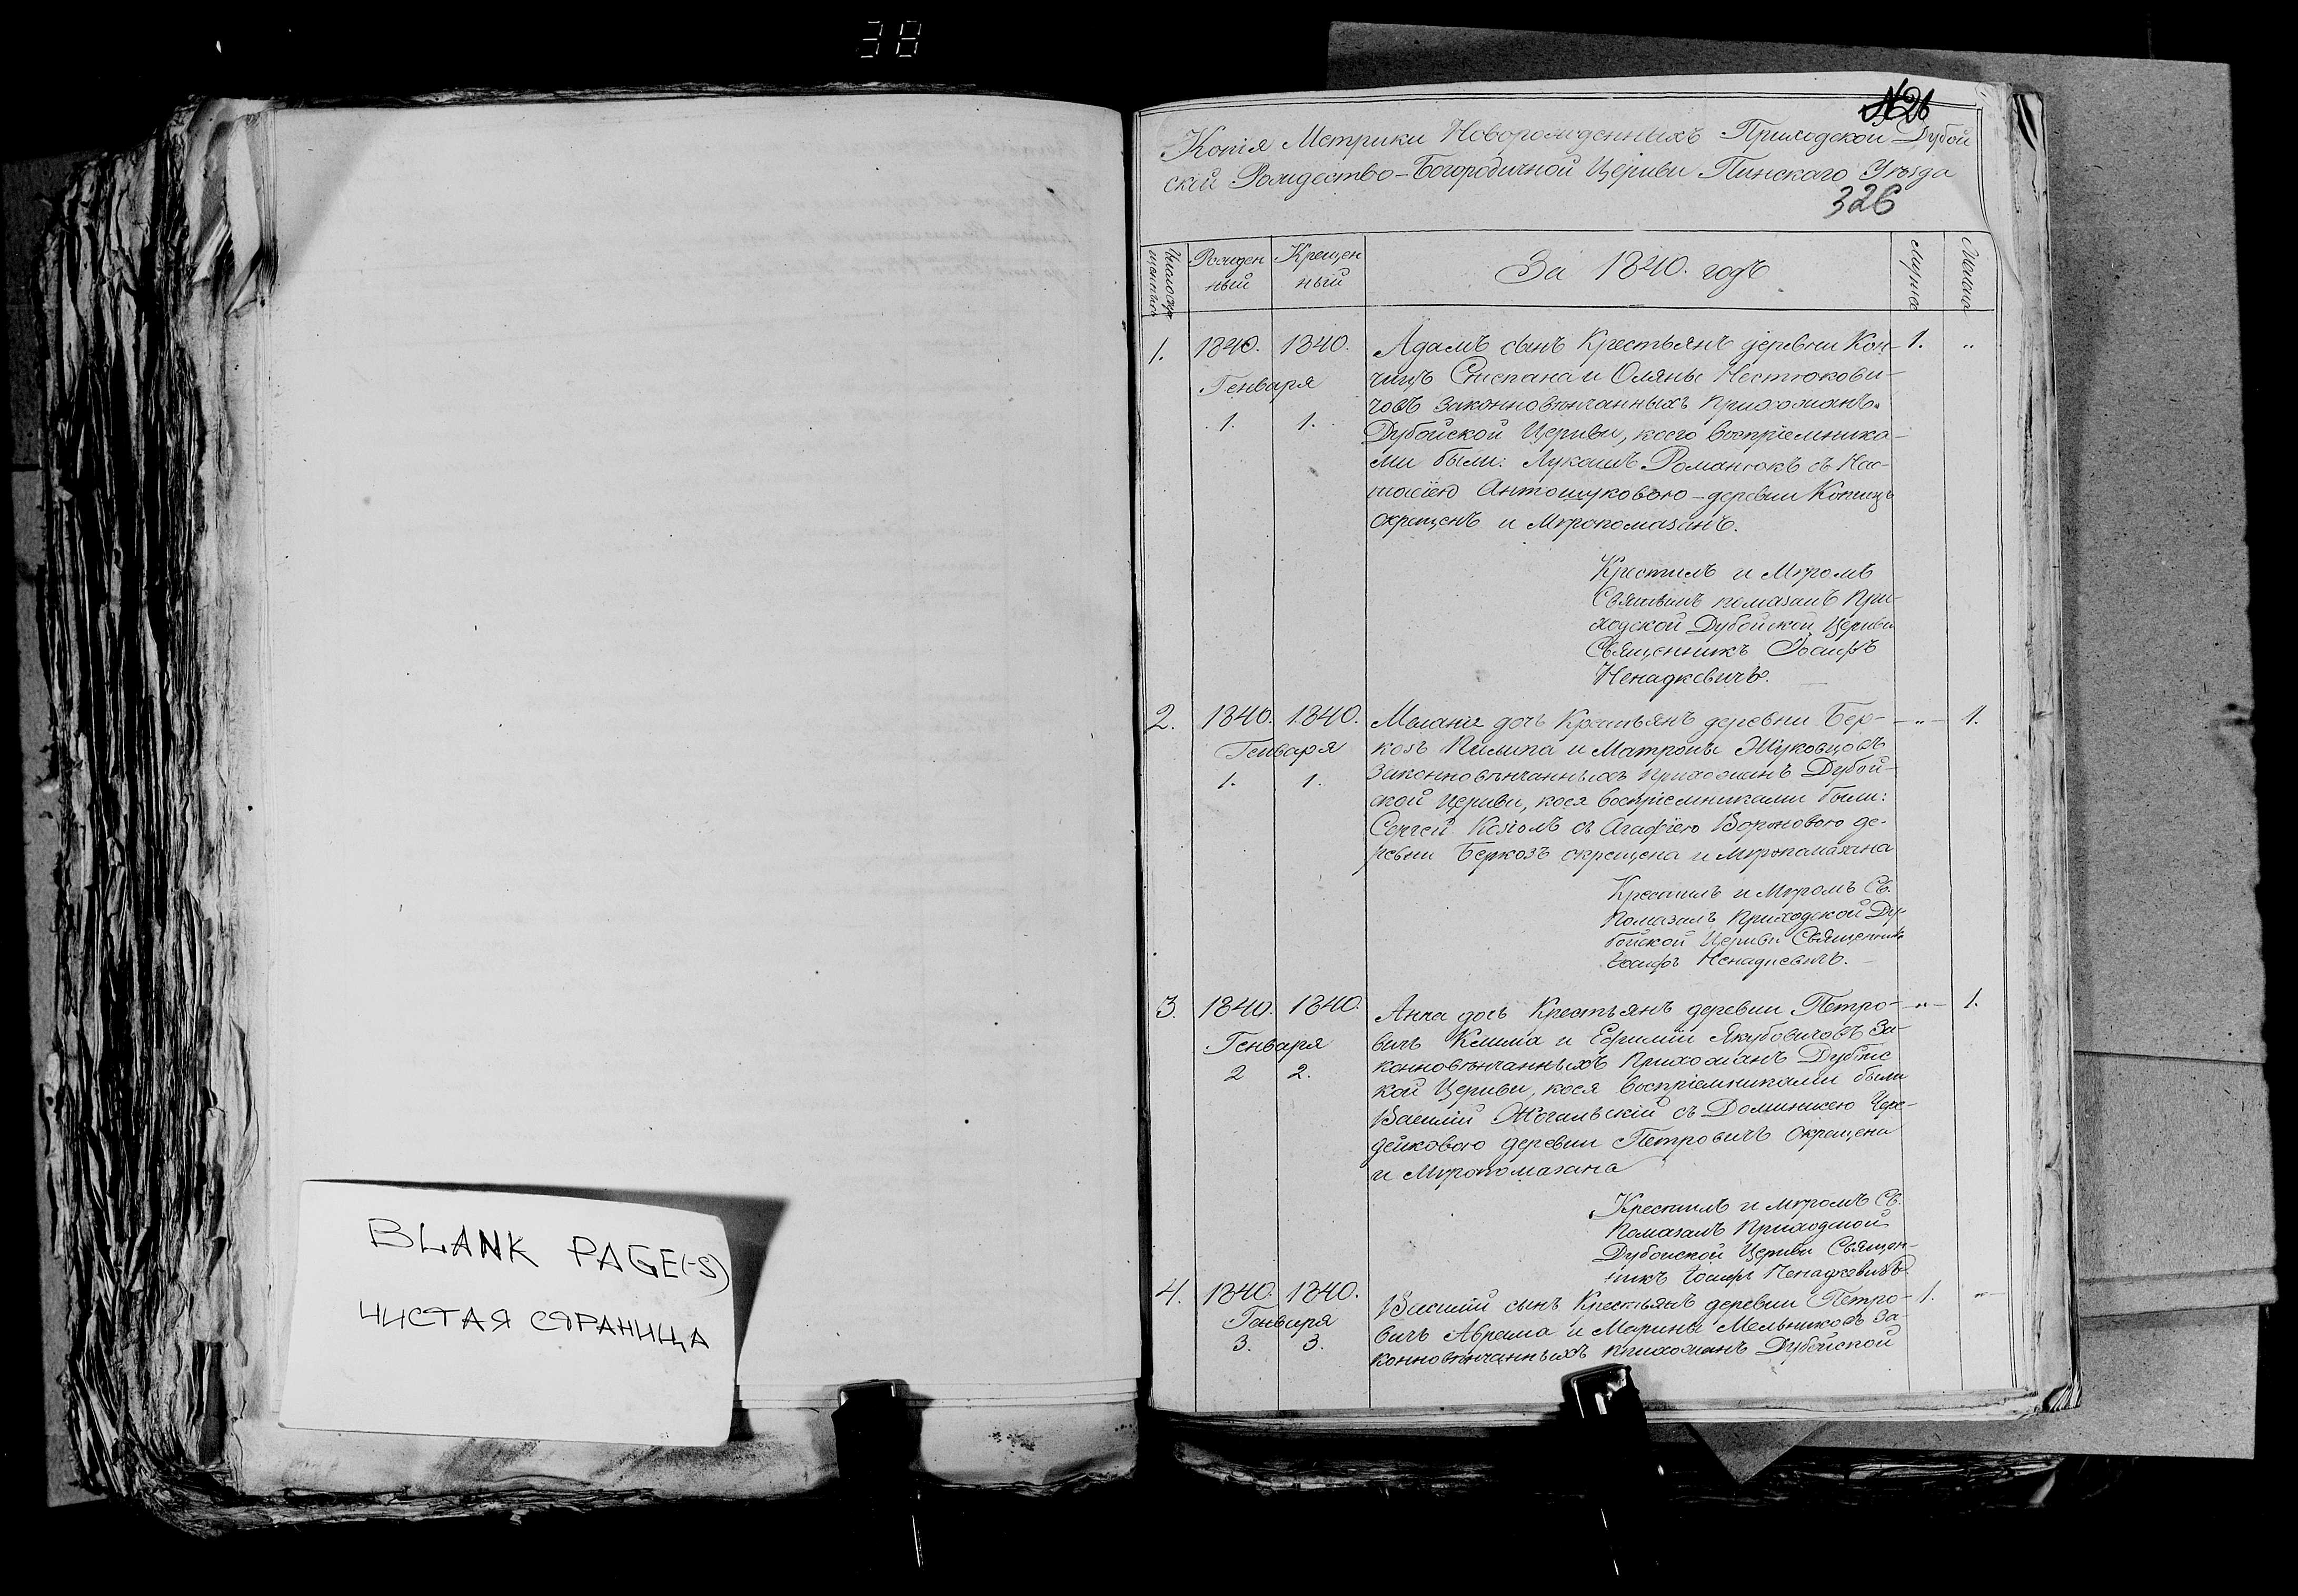 38
BLANK PAGE(-S)
ЧИСТАЯ СТРАНИЦА
326
Копія Метрики Новорожденныхъ Приходской Дубой
ской Рождество-Богородичной Церкви Пинскаго Уѣзда
326
Рожден
ный
Крещен
ный
За 1840. годъ
1. 1840. 1840. Адамъ сынъ Крестьянъ деревни Коп- 1. „
Генваря чицъ Степана и Оляны Нестюкови-
човъ законновѣнчанныхъ Прихожанъ
1. 1. Дубойской Церкви, коего воспріемника-
ми были: Лукашъ Романюкъ съ Нас-
тасіею Антошуковою - деревни Копчицъ
окрещенъ и Мѵропомазанъ.
Крестилъ и Мѵромъ
Святымъ помазалъ При-
ходской Дубойской Церкви
Священникъ Іосифъ
Ненадкевичъ.
2. 1840. 1840. Меланія дочь Крестьянъ деревни Бер- - „ - 1.
Генваря козъ Пилипа и Матроны Жуковцовъ
1. 1. Законновѣнчанныхъ Прихожанъ Дубой-
ской Церкви, коея воспріемниками были:
Сергей Козіолъ съ Агафіею Вороновою де-
ревни Беркозъ окрещена и Мѵропомазана
Крестилъ и Мѵромъ Св.
Помазалъ Приходской Ду-
бойской Церкви Священникъ
Іосифъ Ненадкевичъ.
3. 1840. 1840. Анна дочь Крестьянъ деревни Петро- - „ - 1.
Генваря вичъ Клима и Ефиміи Якубовичовъ За-
2 2. конновѣнчанныхъ Прихожанъ Дубойс
кой Церкви, коея воспріемниками были
Василій Жогальскій съ Доминикею Чере-
дейковою деревни Петровичъ Окрещена
и Мѵропомазана
Крестилъ и мѵромъ Св.
Помазалъ Приходской
Дубойской Церкви Священ-
никъ Іосифъ Ненадкевичъ
4. 1840. 1840. Василій сынъ Крестьянъ деревни Петро- - 1. „
Генваря вичъ Аврама и Марины Мельниковъ За-
3. 3. конновѣнчанныхъ прихожанъ Дубойской